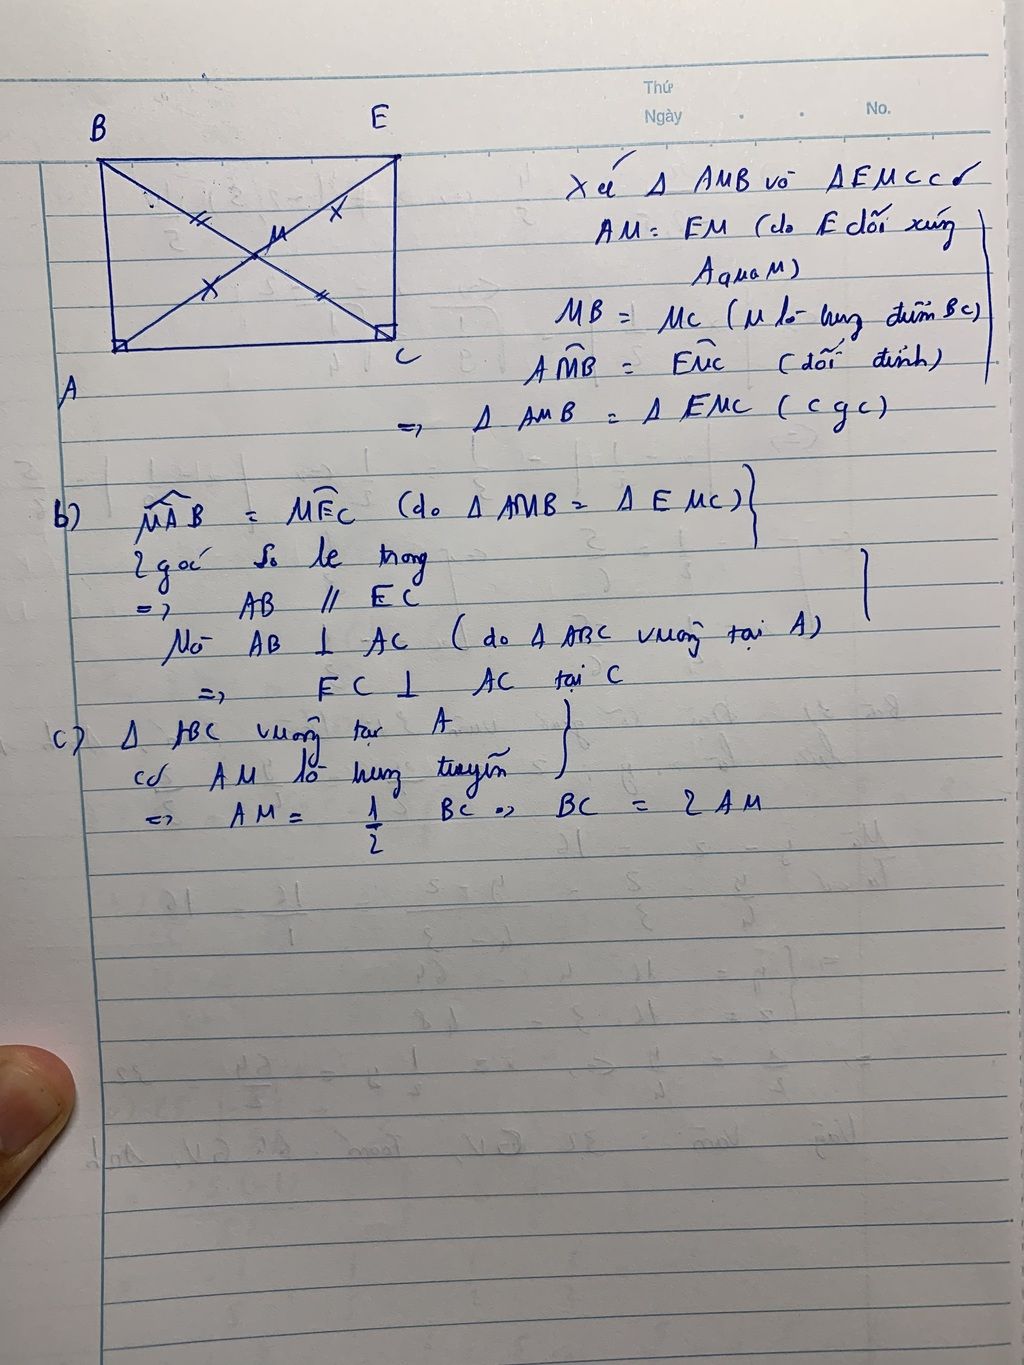 Thứ
Ngày . . No.
B E
M
A C
Xét Δ AMB và ΔEMC có
AM = EM (do E đối xứng
A qua M)
MB = MC (M là trung điểm BC)
AM̂B = EM̂C (đối đỉnh)
=> Δ AMB = Δ EMC (c g c)
b) MÂB = MÊC (do Δ AMB = Δ EMC)
2 góc so le trong
=> AB // EC
Mà AB ⊥ AC (do Δ ABC vuông tại A)
=> EC ⊥ AC tại C
c) Δ ABC vuông tại A
có AM là trung tuyến
=> AM = 1/2 BC => BC = 2 AM